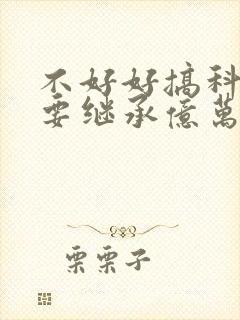 不好好搞科
要继承億萬
栗栗子